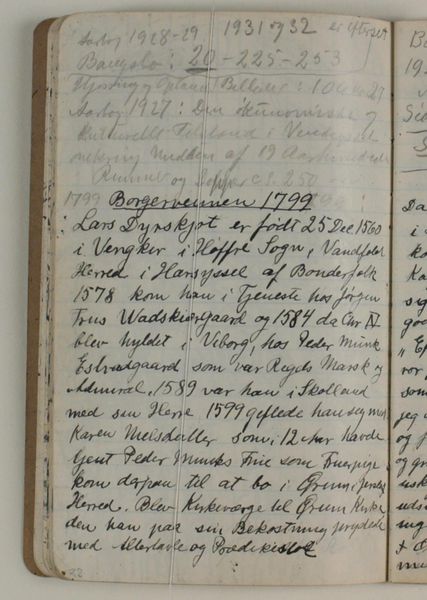 Aarbog 1928-29 1931 og 32 er efterset
Bangsbo: 20-225-253
Hjørring og Opland i Billeder: 1
Aarbog 1927: Den økonomiske og
kulturelle Tilstand i Vendsyssel
omkring Midten af 19 Aarhundrede
Rimmer og Dopper c S. 250
1799 Borgervennen 1799
Lars Dyrskjøt er født 25 Dec 1560
i Vengker i Hoffre Sogn, Vandfuld
Herred i Harsyssel af Bonderfolk
1578 kom han i Tjeneste hos Jørgen
Frus Wadskiærgaard og 1584 da Chr IV
blev hyldet i Viborg, hos Peder Munk
Estvadgaard som var Rigets Marsk og
Admiral. 1589 var han i Skotland
med sin Herre 1599 giftede han sig med
Karen Nielsdatter som i 12 Aar havde
tjent Peder Munks Frue som Fruerpige
kom derpaa til at bo i Ørum i Jerslev
Herred. Blev Kirkeværge til Ørum Kirke
den han paa sin Bekostning prydede
med Altertavle og Prædikestol